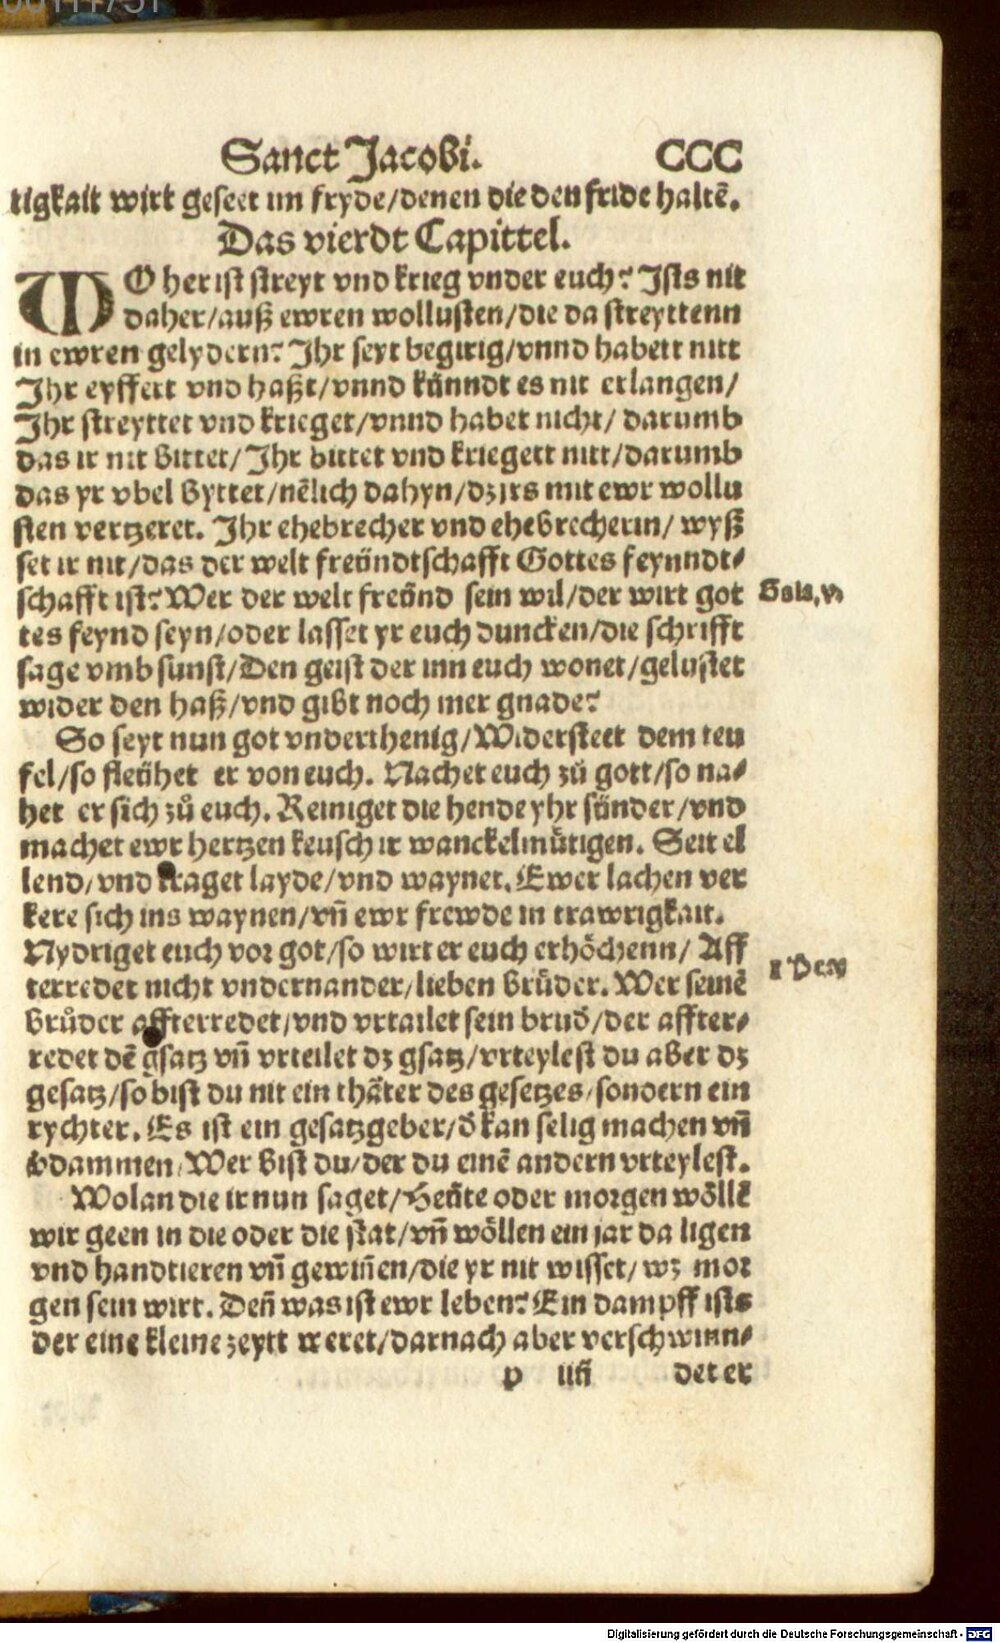 Sanct Jacobi. CCC
tigkait wirt geseet im fryde/denen die den fride haltē.
Das vierdt Capittel.
WO her ist streyt vnd krieg vnder euch? Ists nit
daher/auß ewren wollusten/die da streyttenn
in ewren gelydern? Ihr seyt begirig/vnnd habett nitt
Ihr eyffert vnd haßt/vnnd künndt es nit erlangen/
Ihr streyttet vnd krieget/vnnd habet nicht/ darumb
das ir nit bittet/ Ihr bittet vnd kriegett nitt/darumb
das yr vbel byttet/nēlich dahyn/dz irs mit ewr wollu
sten vertzeret. Ihr ehebrecher vnd ehebrecherin/ wyß
set ir nit/das der welt freündtschafft Gottes feynndt⸗
schafft ist? Wer der welt freünd sein wil/der wirt got
tes feynd seyn/oder lasset yr euch duncken/die schrifft
sage vmb sunst/Den geist der inn euch wonet/gelustet
wider den haß/vnd gibt noch mer gnade?
So seyt nun got vnderthenig/Widersteet dem teu
fel/so fleühet er von euch. Nachet euch zů gott/so na⸗
het er sich zů euch. Reiniget die hende yhr sünder/vnd
machet ewr hertzen keusch ir wanckelmütigen. Seit el
lend/vnd traget layde/vnd waynet. Ewer lachen ver
kere sich ins waynen/vñ ewr frewde in trawrigkait.
Nydriget euch vor got/so wirt er euch erhöchenn/ Aff
terredet nicht vndernander/lieben brüder. Wer seinē
brůder affterredet/vnd vrtailet sein brud̄/der affter⸗
redet dē gsatz vñ vrteilet dz gsatz/vrteylest du aber dz
gesatz/so bist du nit ein thäter des gesetzes/sondern ein
rychter. Es ist ein gesatzgeber/d̄ kan selig machen vñ
v̄dammen/Wer bist du/der du einē andern vrteylest.
Wolan die ir nun saget/Heüte oder morgen wöllē
wir geen in die oder die stat/vñ wöllen ein jar da ligen
vnd handtieren vñ gewiñen/die yr nit wisset/ wz mor
gen sein wirt. Deñ was ist ewr leben? Ein dampff ists
der eine kleine zeytt weret/darnach aber verschwinn⸗
p iiij det er
Gala. v.
Digitalisierung gefördert durch die Deutsche Forschungsgemeinschaft - DFG